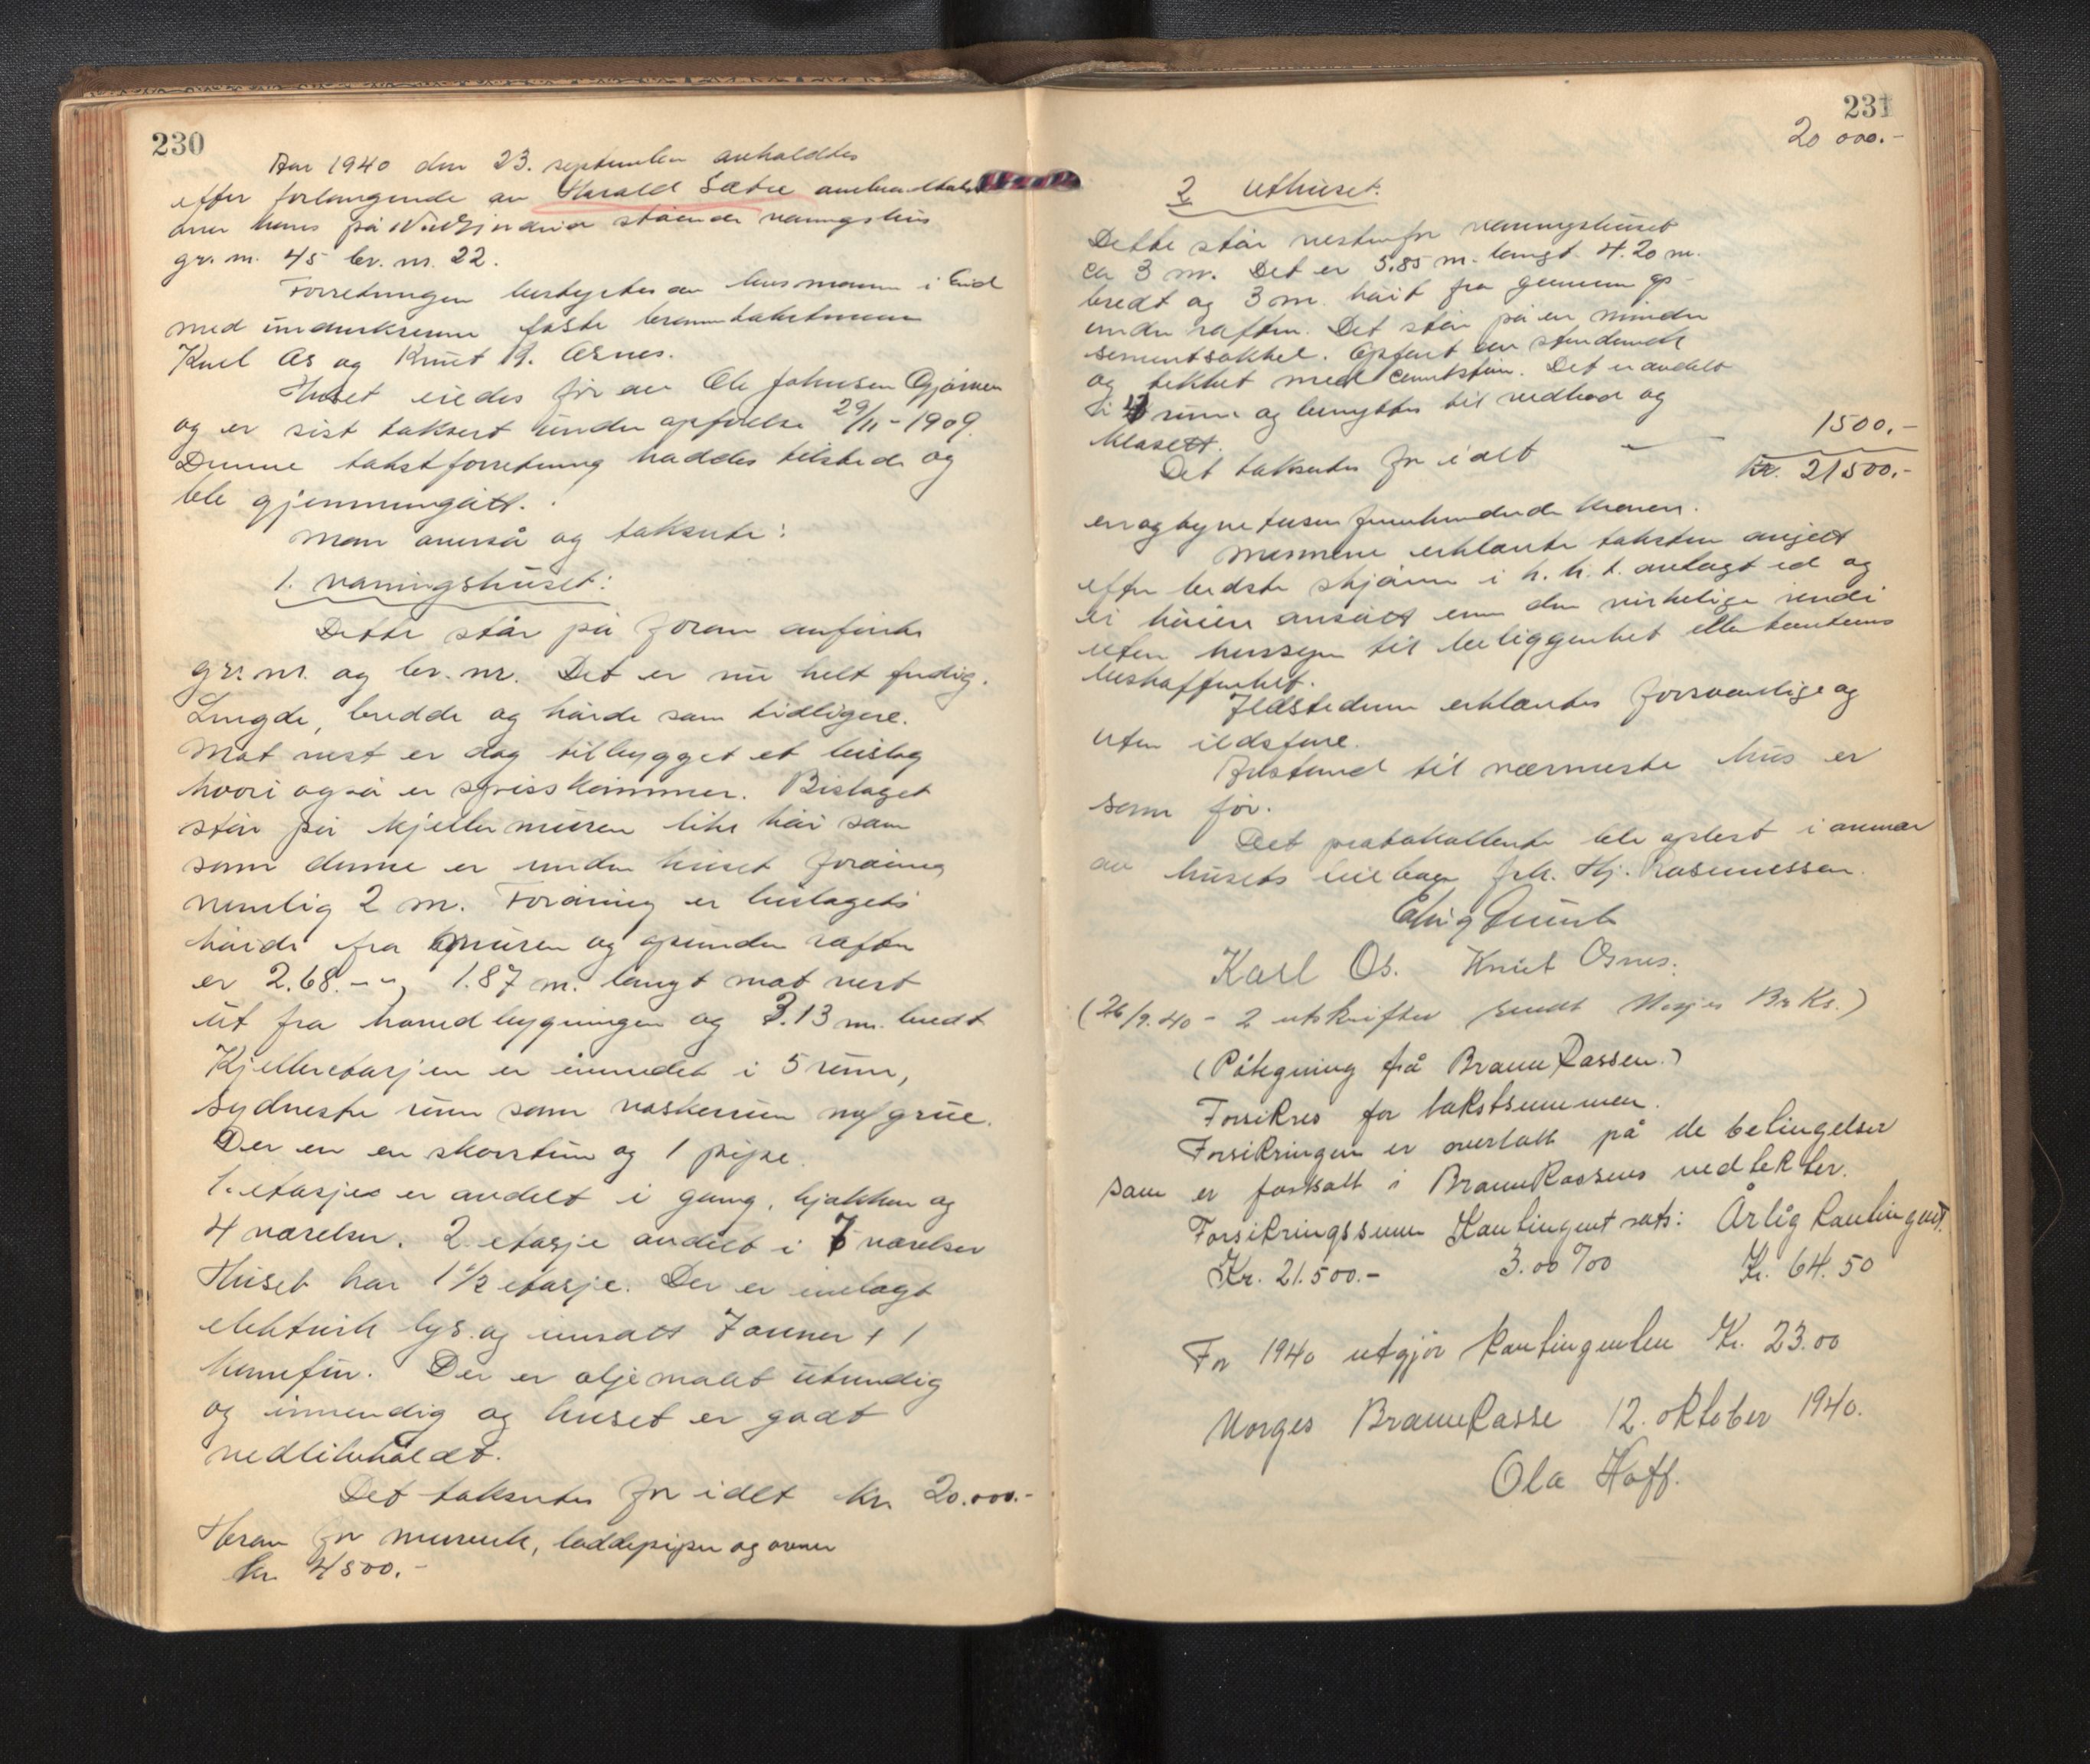 230
Aar 1940 den 23. september avholdtes
efter forlangende av Harald Sætre
over hans på stående vaaningshus
gr. nr. 45 br. nr. 22.
Forretningen bestyrtes av lensmannen i Eid
med undertegnede faste branntakstmenn
Karl Os og Knut R. Osnes.
Huset eiedes før av Ole Johnsen
og er sist taksert under opførelse 29/11-1909.
Denne takstforretning haddes tilstede og
ble gjennemgått.
Man anså og takserte:
1. vaaningshuset:
Dette står på foran anførte
gr. nr. og br. nr. Det er nu helt ferdig.
Lengde, bredde og høide som tidligere.
Mot vest er dog tilbygget et bislag
hvori også er spisskammer. Bislaget
står på kjellermuren like høi som
som denne er under huset forøvrig
nemlig 2 m. Forøvrig er bislagets
høide fra muren og opunder raften
er 2.68. 1.87 m. langt mot vest
ut fra hovedbygningen og 3.13 m. bredt
Kjelleretasjen er innredet i 5 rum,
sydvestre rum som vaskerum m/ grue.
Der er en skorstein og 1 pipe.
1. etasje er avdelt i gang, kjøkken og
4 værelser. 2. etasje avdelt i 7 værelser
Huset har 1 1/2 etasje. Der er innlagt
elektrisk lys og innsatt 7 ovner + 1
komfyr. Der er oljemalt utvendig
og innvendig og huset er godt
vedlikeholdt.
Det takseres for i alt kr. 20.000.-
Herav for murverk, loddepiper og ovner
kr. 4500.-
231
20 000.-
2 Uthuset.
Dette står vestenfor vaaningshuset
ca 3 m. Det er 5.85 m. langt 4.20 m.
bredt og 3 m. høit fra grunnen op
under raften. Det står på en mindre
sementsokkel. Opført av stenderverk
og tekket med cementstein. Det er avdelt
i rum og benyttes til vedbod og
klosett.
Det takseres for i alt - - 1500.-
Kr. 21500.-
enogtyvetusen femhundrede kroner.
Mennene erklærte taksten avgitt
efter bedste skjønn i h. h. t. avlagt ed og
ei høiere ansatt enn den virkelige verdi
uten hensyn til beliggenhet eller tomtens
beskaffenhet.
Ildstedene erklærtes forsvarlige og
uten ildsfare.
Avstand til nærmeste hus er
som før.
Det protokollerte ble oplest i nærvær
av husets leieboer frk. Hj. Rasmussen.
Karl Os. Knut Osnes.
(26/9.40 - 2 utskrifter sendt Norges Br.Ks.)
(Påtegning frå BrannKassen.)
Forsikres for takstsummen.
Forsikringen er overtatt på de betingelser
som er fastsatt i BrannKassens vedtekter.
Forsikringssum Kontingentsats: Årlig Kontingent.
Kr. 21.500.- 3.00 ‰ Kr. 64.50
For 1940 utgjør kontingenten Kr. 23.00
Norges BrannKasse 12. oktober 1940.
Ola Hoff.